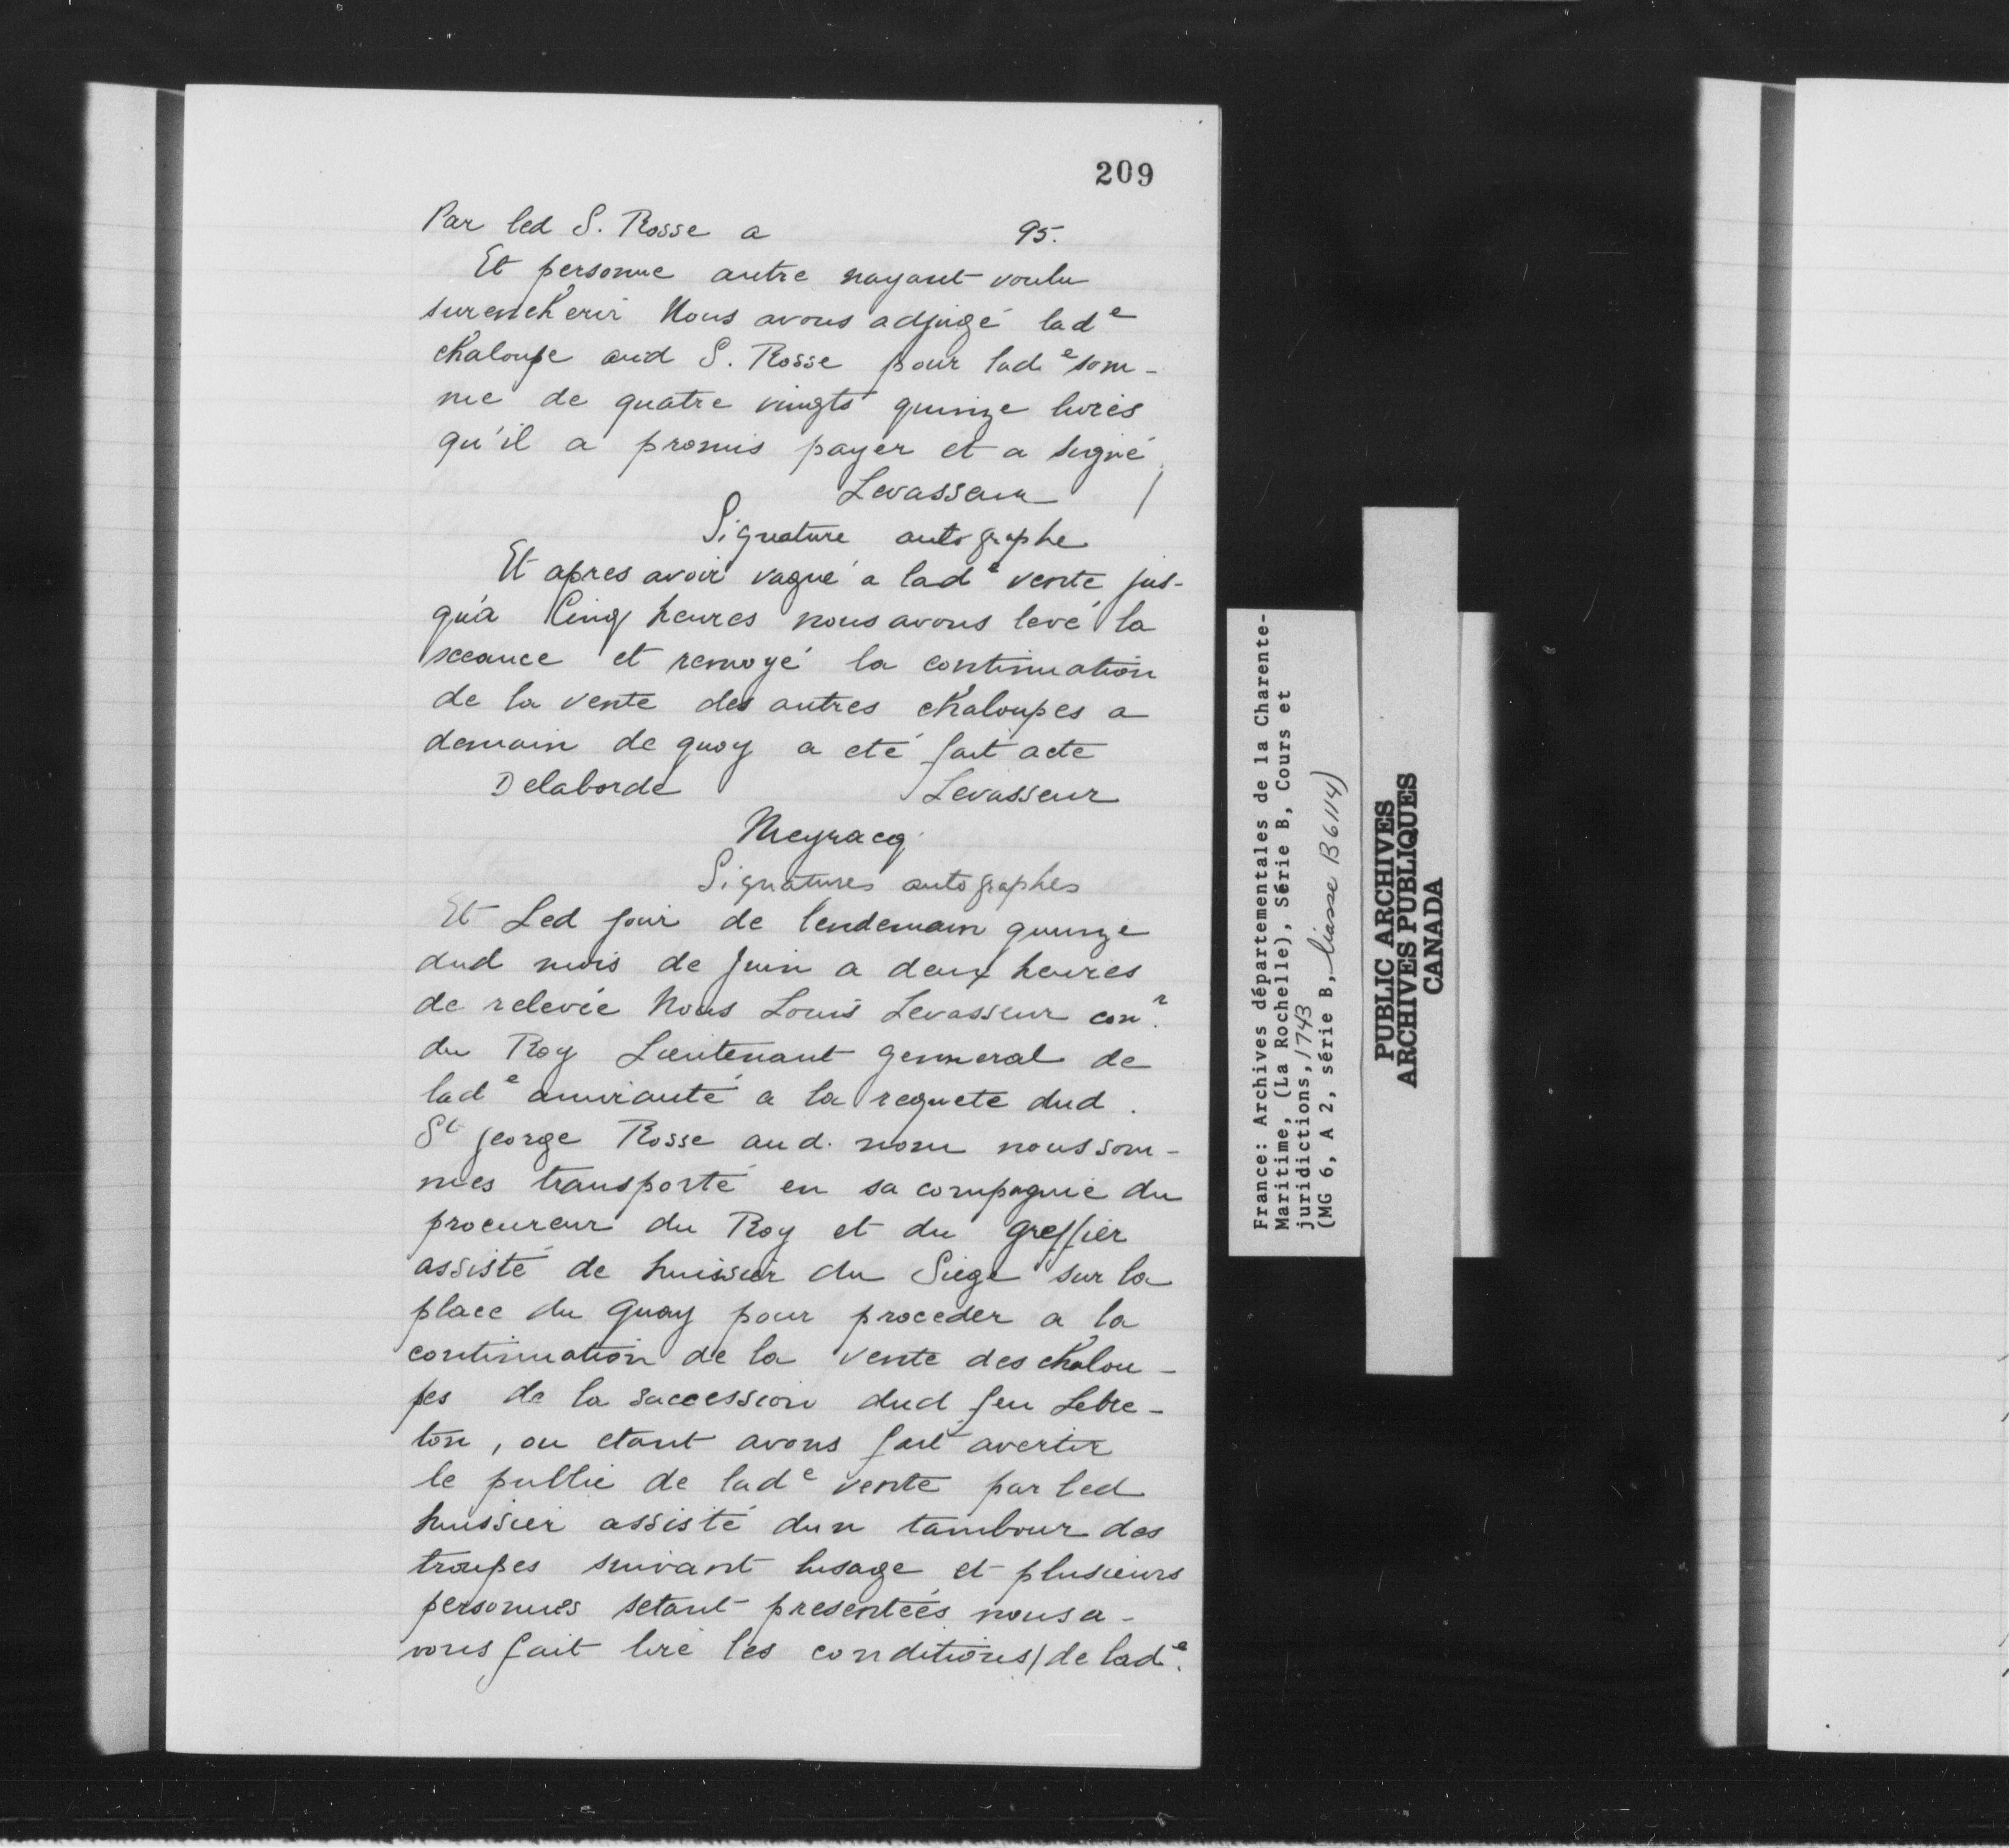 209
Par led S. Rosse a 95.
Et personne autre nayant voulu
surencherir Nous avons adjugé lad e
chaloupe aud S. Rosse pour lad e som-
me de quatre vingts quinze livres
qu'il a promis payer et a signé
Levasseur /
Signature autographe
Et apres avoir vaqué a lad e vente jus-
qu'a Cinq heures nous avons levé la
sceance et renvoyé la continuation
de la vente des autres chaloupes a
demain de quoy a eté fait acte
Delaborde Levasseur
Meyracq
Signatures autographes
Et Led jour de lendemain quinze
dud mois de Juin a deux heures
de relevée Nous Louis Levasseur con r.
du Roy Lieutenant genneral de
lad e amirauté a la requete dud.
St George Rosse aud. nom nous som-
mes transporté en sa compagnie du
procureur du Roy et du greffier
assisté de huissier du Siege sur la
place du Quay pour proceder a la
continuation de la vente des chalou-
pes de la succession dud feu Lebre-
ton, ou etant avons fait avertir
le public de lad e vente par led
huissier assisté dun tambour des
troupes suivant lusage et plusieurs
personnes setant presenteés nous a-
vons fait lire les conditions / de lad e.
France: Archives départementales de la Charente-
Maritime, (La Rochelle), Série B, Cours et
juridictions, 1743
(MG 6, A 2, série B, liasse B 6114)
PUBLIC ARCHIVES
ARCHIVES PUBLIQUES
CANADA